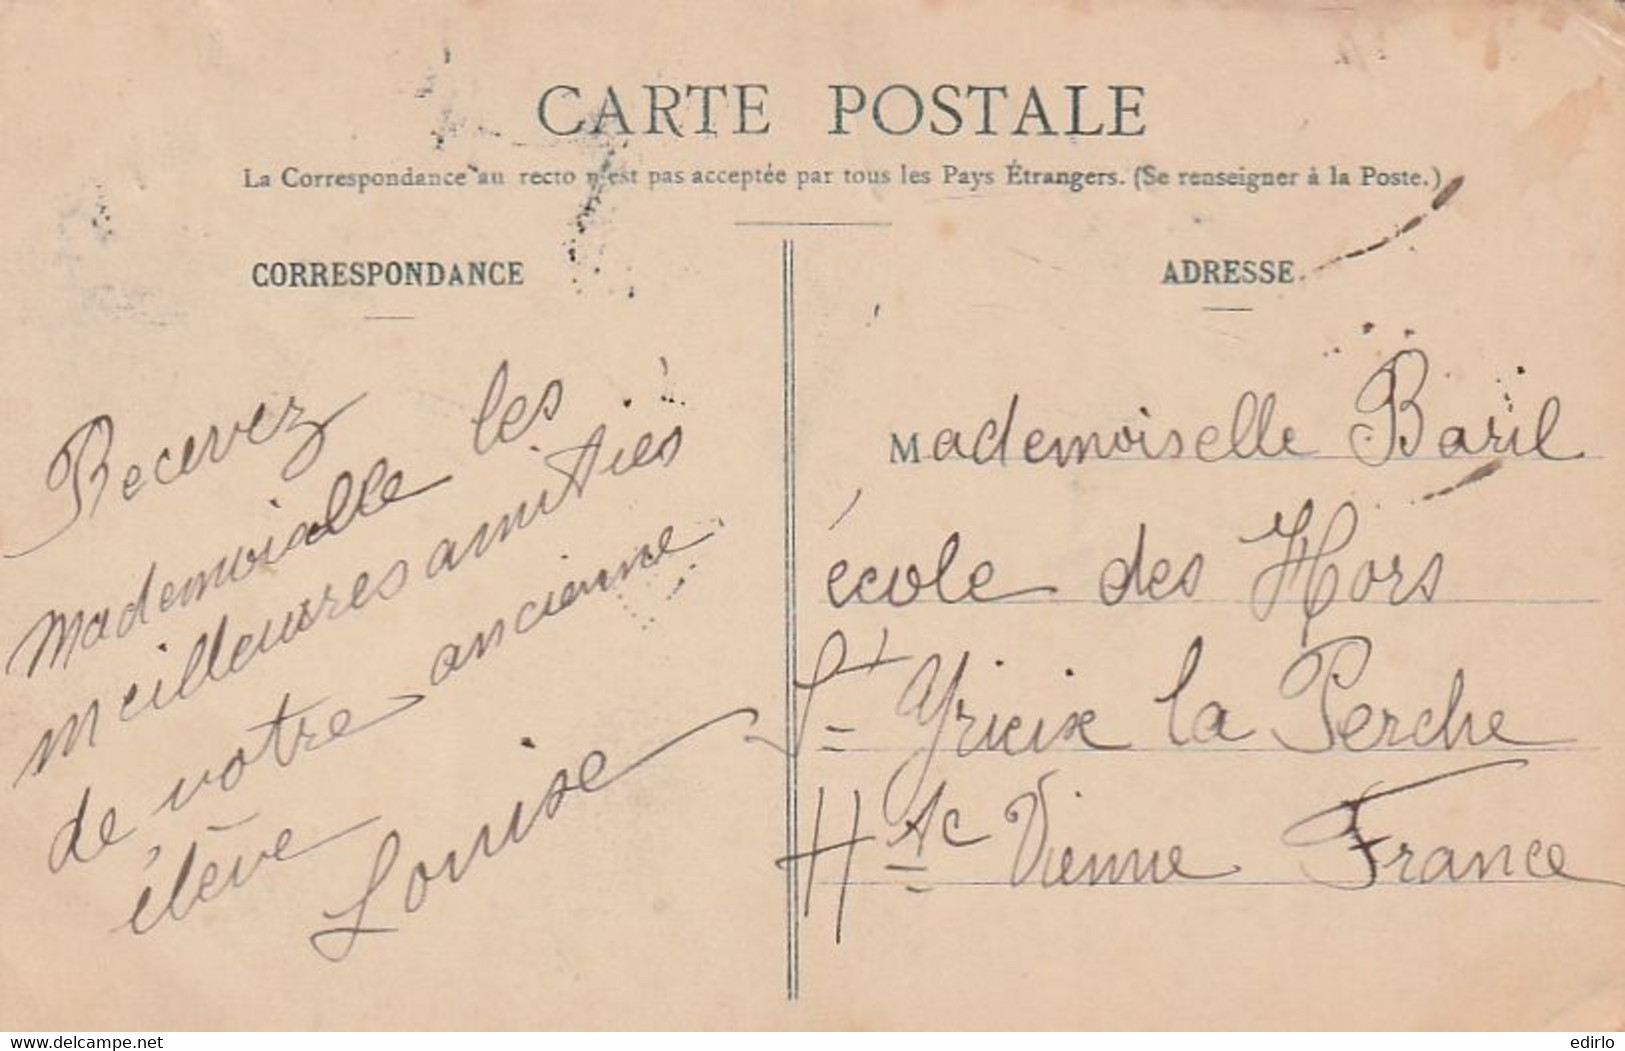 CARTE POSTALE
La Correspondance au recto n'est pas acceptée par tous les Pays Étrangers. (Se renseigner à la Poste.)
CORRESPONDANCE
Recevez
Mademoiselle les
meilleures amitiés
de votre ancienne
élève
Louise
ADRESSE
Mademoiselle Baril
école des Hors
St Yrieix la Perche
Hte Vienne France
www.delcampe.net
edirlo